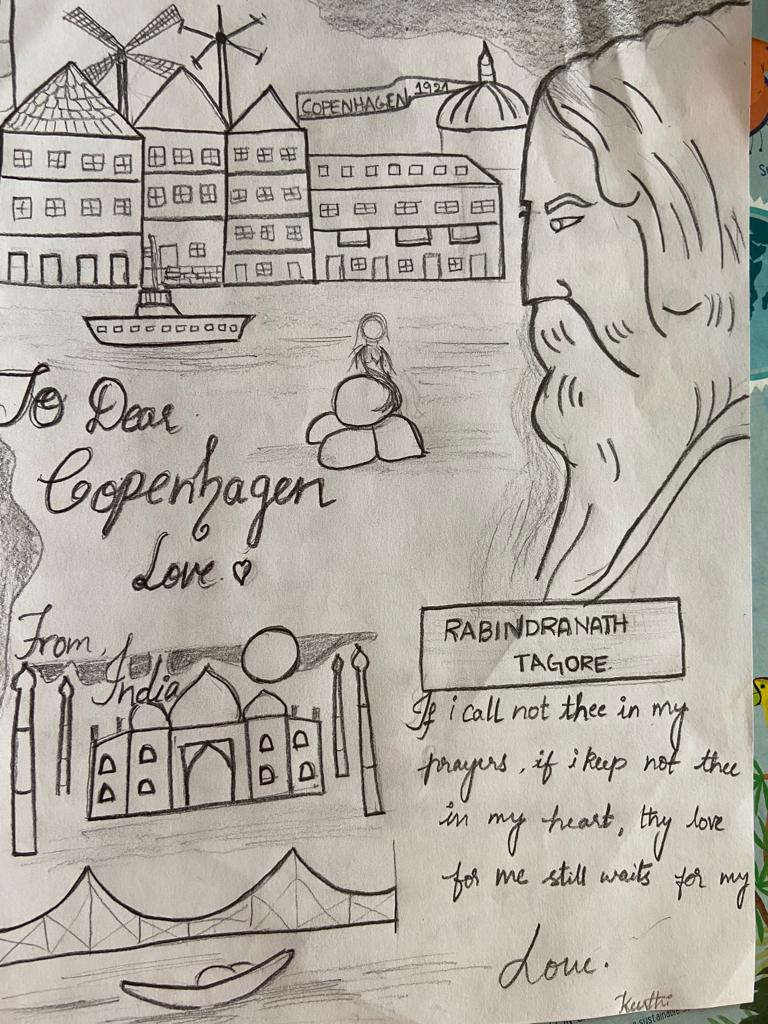 COPENHAGEN 1921
To Dear
Copenhagen
Love.
From,
India
RABINDRANATH
TAGORE.
If i call not thee in my
prayers, if i keep not thee
in my heart, thy love
for me still waits for my
Love.